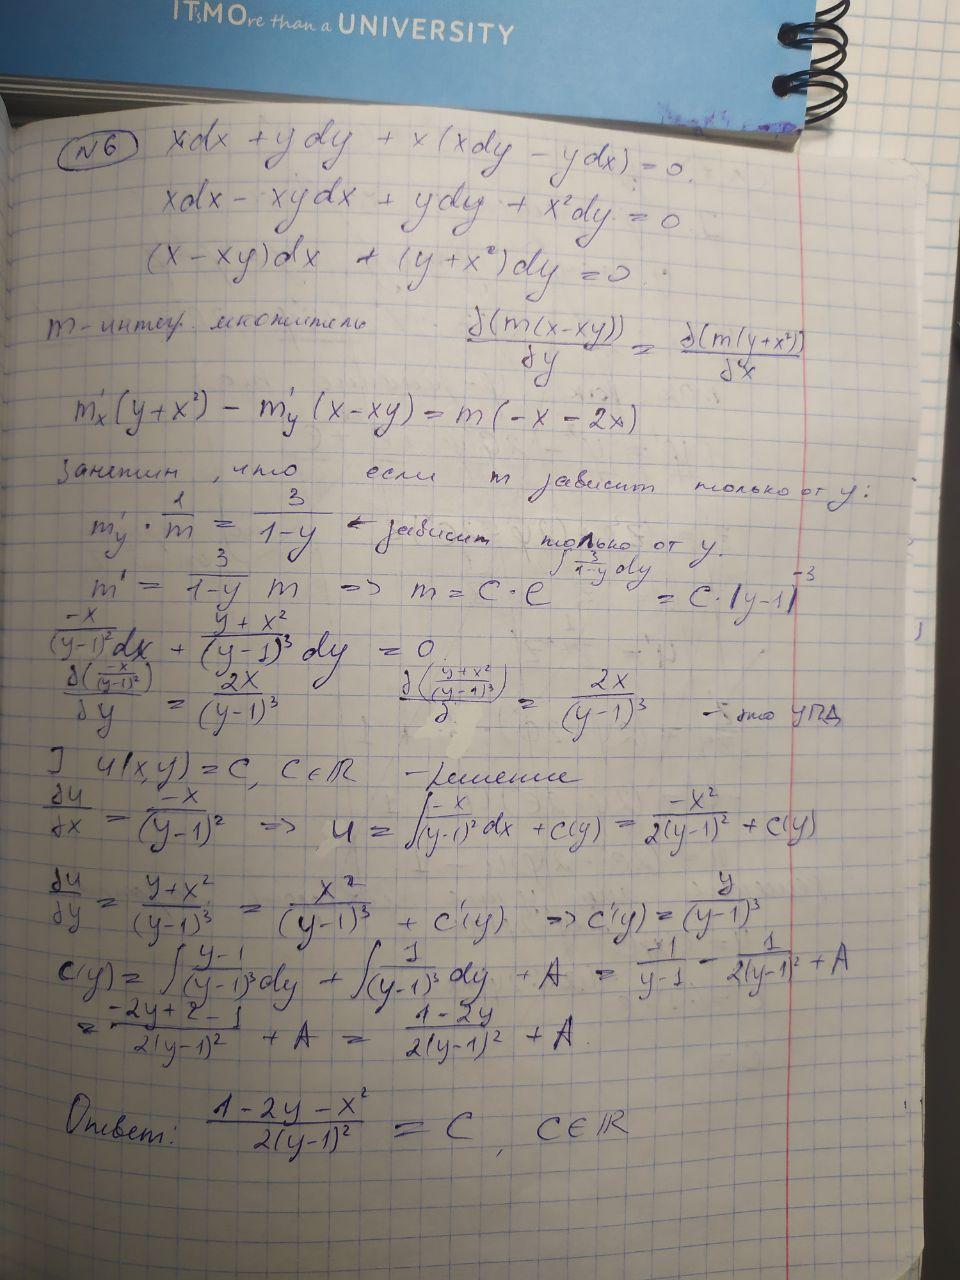 ITsMOre than a UNIVERSITY
N6 xdx + ydy + x(xdy - ydx) = 0.
xdx - xydx + ydy + x²dy = 0
(x - xy)dx + (y + x²)dy = 0.
m - интегр. множитель ∂(m(x-xy))/∂y = ∂(m(y+x²))/∂x
m'x(y+x²) - m'y(x-xy) = m(-x-2x)
Заметим, что если m зависит только от y:
m'y · 1/m = 3/(1-y) ← зависит только от y.
m' = 3/(1-y) m => m = C·e^(∫3/(1-y)dy) = C·|y-1|^(-3)
-x/(y-1)² dx + (y+x²)/(y-1)³ dy = 0
∂(-x/(y-1)²)/∂y = 2x/(y-1)³ ∂((y+x²)/(y-1)³)/∂ = 2x/(y-1)³ - это УПД
] u(x,y) = C, C∈ℝ - решение
∂u/∂x = -x/(y-1)² => u = ∫-x/(y-1)² dx + c(y) = -x²/2(y-1)² + c(y)
∂u/∂y = (y+x²)/(y-1)³ = x²/(y-1)³ + c'(y) => c'(y) = y/(y-1)³
c(y) = ∫(y-1)/(y-1)³ dy + ∫1/(y-1)³ dy + A = -1/(y-1) - 1/2(y-1)² + A
= (-2y+2-1)/2(y-1)² + A = (1-2y)/2(y-1)² + A
Ответ: (1-2y-x²)/2(y-1)² = C, C∈ℝ